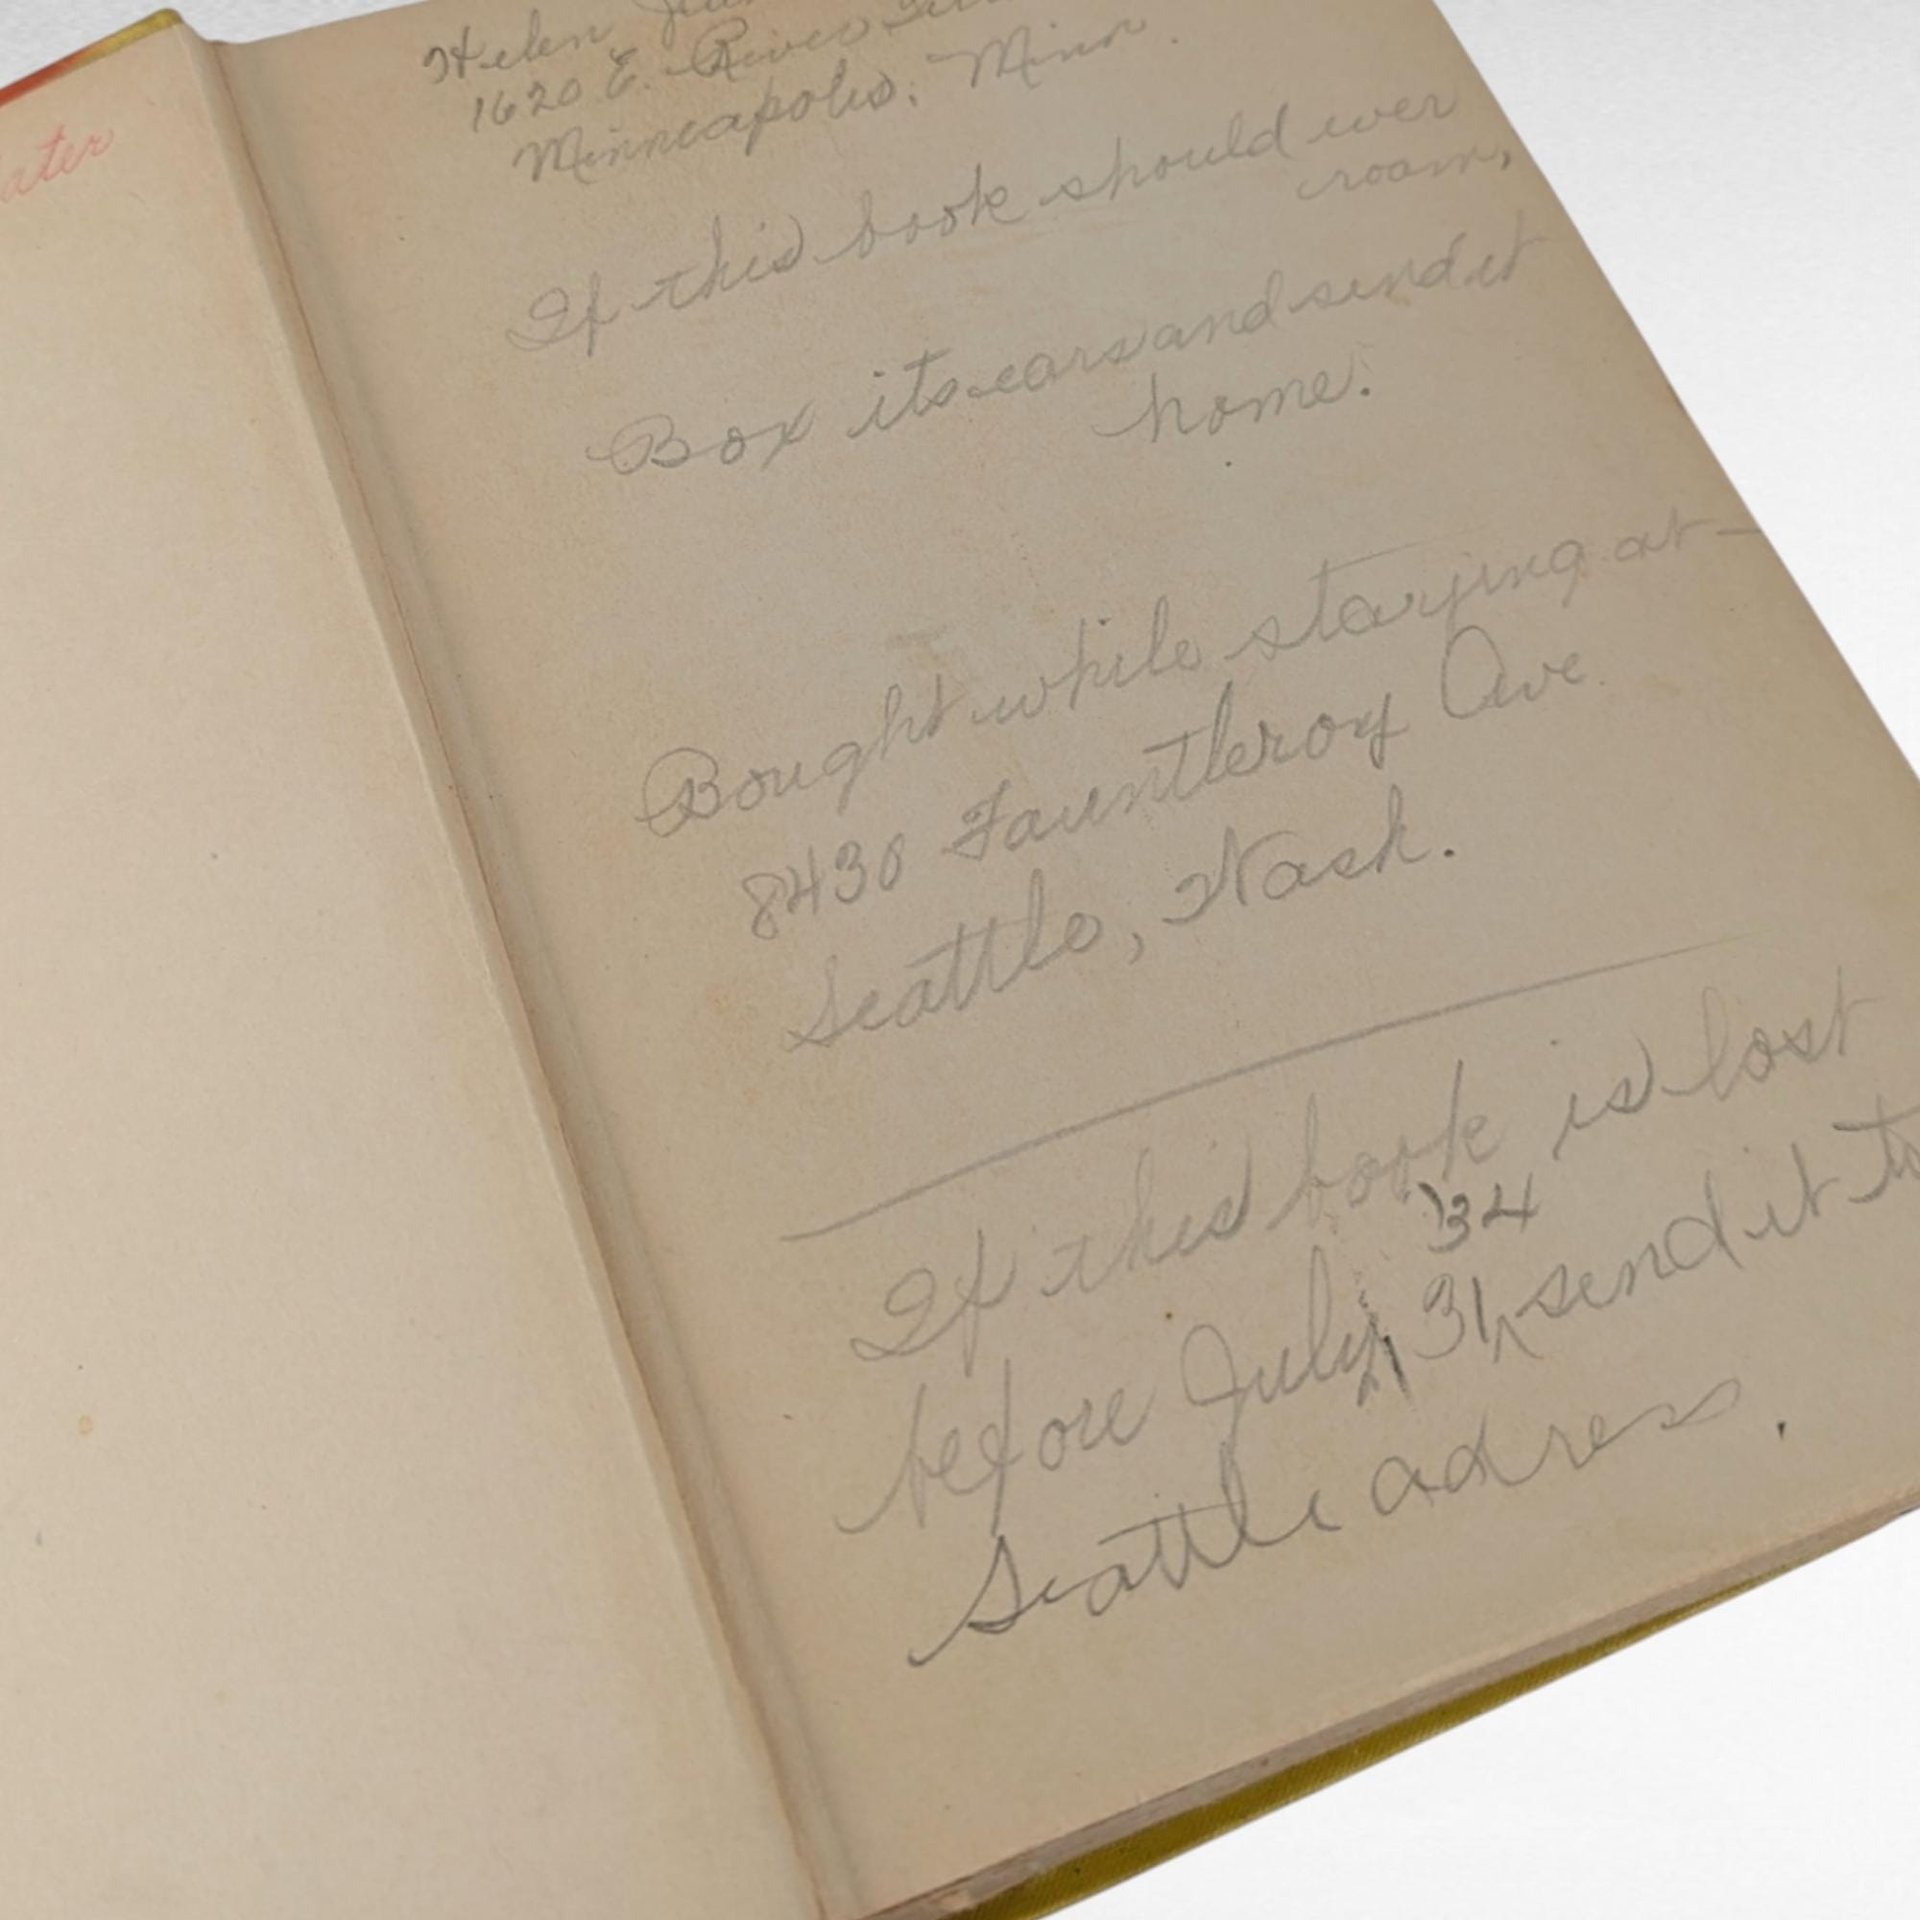 ater
Helen
1620 E. River
Minneapolis, Minn.
If this book should ever
roam,
Box its ears and send it
home.
Bought while staying at—
8430 Fauntleroy Ave.
Seattle, Wash.
If this book is lost
'34
before July, 31, send it to
Seattle adress.